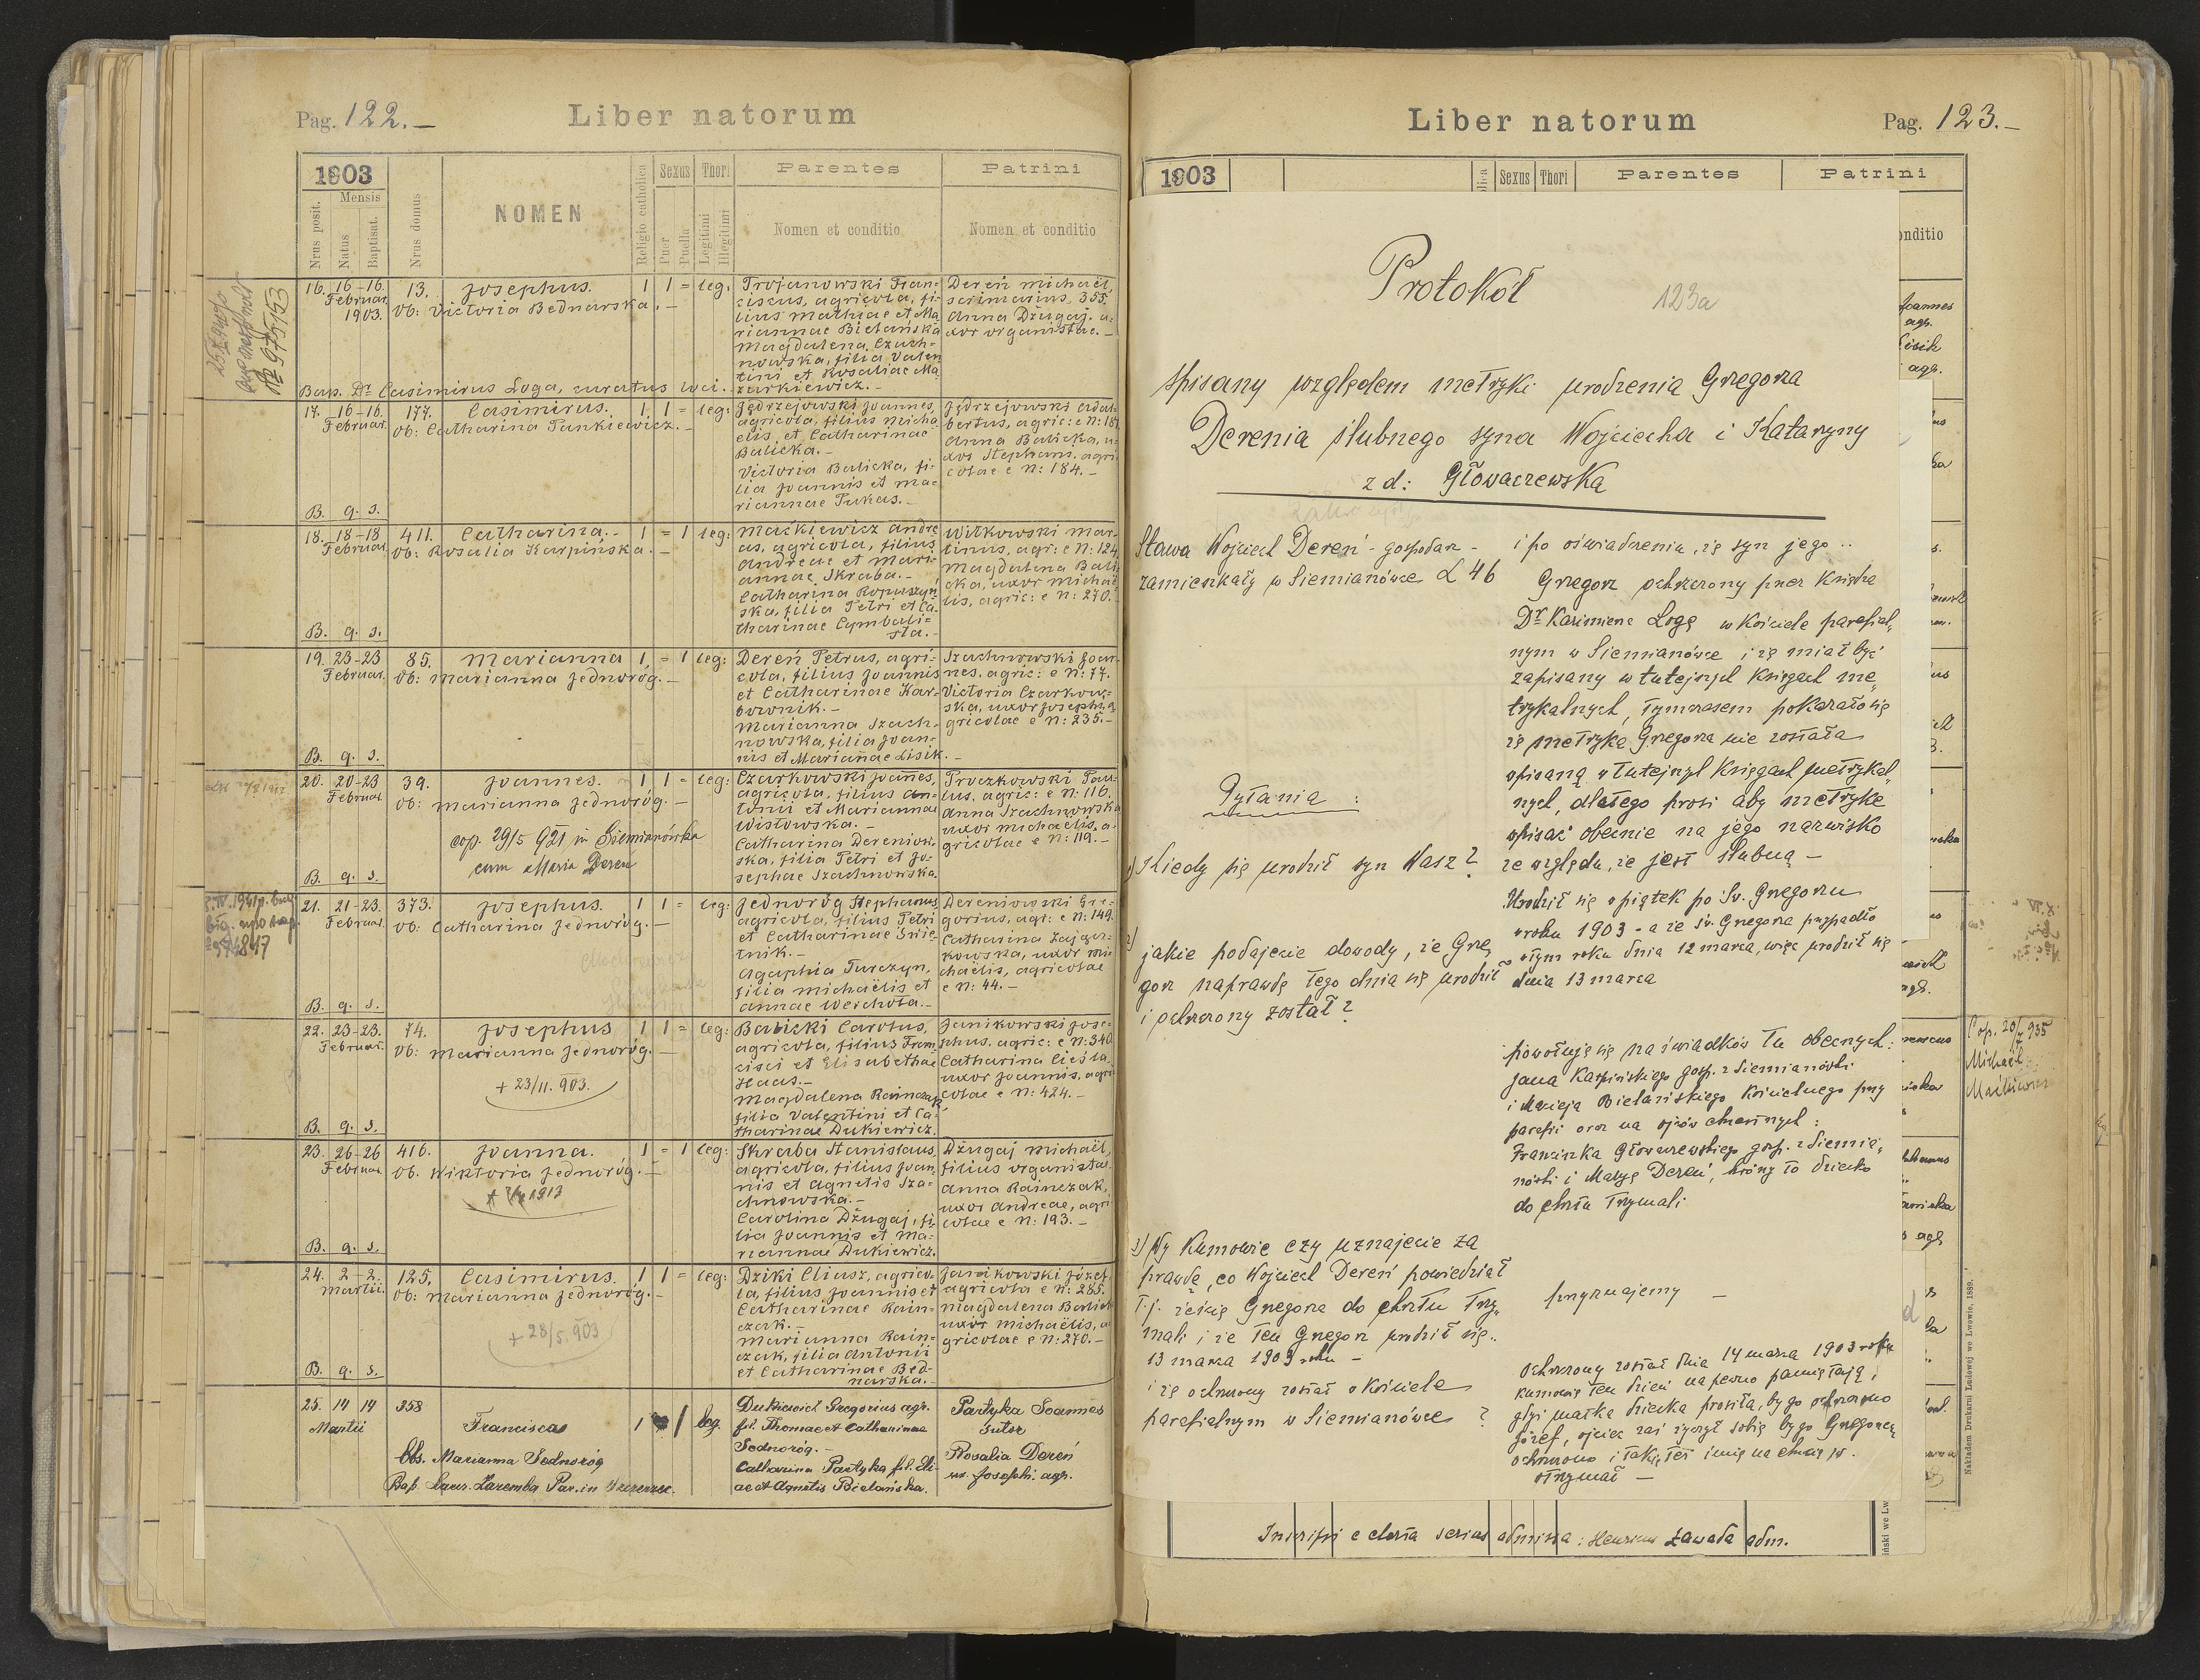 Pag. 122.—
Liber natorum
1903
Mensis
Nrus posit.
Natus
Baptisat.
Nrus domus
NOMEN
Religio catholica
Sexus
Puer
Puella
Thori
Legitimi
Illegitimi
Parentes
Nomen et conditio
Patrini
Nomen et conditio
№ 975153
16. 16-16. 13. Josephus. 1 1 = leg.
Februar.
1903. Ob: Victoria Bednarska.—
Trojanowski Fran=
ciscus, agricola, fi-
lius Mathiae et Ma
riannae Bielańska
Magdalena Czach=
nowska, filia Valen
tini et Rosaliae Ma
zurkiewicz.—
Dereń Michaël,
355.
Anna Dżugaj, u-
xor organistae.—
Bap. Dr Casimirus Loga, curatus loci.
17. 16-16. 177. Casimirus. 1 1 = leg:
Februar. Ob: Catharina Pankiewicz.—
Jędrzejowski Joannes,
agricola, filius Micha
elis et Catharinae
Balicka.—
Victoria Balicka, fi-
lia Joannis et Ma=
riannae Pukas.—
Jędrzejowski Adal=
bertus, agric: e N: 187
Anna Balicka, u-
xor Stephani, agri
colae e N: 184.—
B. q. s.
18. 18-18 411. Catharina.— 1 = 1 leg:
Februar. Ob: Rosalia Karpińska.—
Maćkiewicz Andre
as, agricola, filius
Andreae et Mari=
annae Skraba.—
Catharina
ska, filia Petri et Ca-
tharinae Cymbali=
sta.—
Witkowski Mar-
tinus, agr: e N: 124
Magdalena Bali
cka, uxor Michaë
lis, agric: e N: 270.—
B. q. s.
19. 23-23 85. Marianna 1 = 1 leg:
Februar. Ob: Marianna Jednoróg.—
Dereń Petrus, agri=
cola, filius Joannis
et Catharinae Kar-
bownik.—
Marianna Szach-
nowska, filia Joan-
nis et Mariañae Lisik.—
Szachnowski Joan-
nes, agric: e N: 77.
Victoria Czarkow=
ska, uxor Josephi, a
gricolae e N: 235.—
B. q. s.
20. 20-23 39. Joannes. 1 1 = leg:
Februar. Ob: Marianna Jednoróg.—
cop. 29/5 921 in Siemianówka
cum Maria Dereń
Czarkowski Joañes,
agricola, filius An=
tonii et Mariannae
Wisłowska.—
Catharina Dereniow-
ska, filia Petri et Jo-
sephae Szachnowska.
Proczkowski Pau-
lus, agric: e N: 116.
Anna Szachnowska
uxor Michaëlis, a-
gricolae e N: 119.—
B. q. s.
974817
21. 21-23. 373. Josephus. 1 1 = leg:
Februar. Ob: Catharina Jednoróg.—
Jednoróg Stephanus
agricola, filius Petri
et Catharinae Śnie-
tnik.—
Agaphia Turczyn,
filia Michaëlis et
Annae Weichota.—
Dereniowski Gre-
gorius, agr: e N: 149.
Catharina Zającz-
kowska, uxor Mi
chaëlis, agricolae
e N: 44.—
B. q. s.
22. 23-23. 74. Josephus 1 1 = leg:
Februar. Ob: Marianna Jednoróg.—
+ 23/11. 903.
Balicki Carolus,
agricola, filius Fran
cisci et Elisabethae
Haas.—
Magdalena Rainczak
filia Valentini et Ca-
tharinae Dukiewicz.
Janikowski Jose=
phus, agric: e N: 340
Catharina Cieśla,
uxor Joannis, agri
colae e N: 424.—
B. q. s.
23. 26-26 416. Joanna. 1 = 1 leg:
Februar. Ob. Wiktoria Jednoróg.—
Skraba Stanislaus,
agricola, filius Joan
nis et Agnetis Sza-
chnowska.—
Carolina Dżugaj, fi-
lia Joannis et Ma-
riannae Dukiewicz.
Dżugaj Michaël,
filius organistae
Anna Rainczak,
uxor Andreae, agri
colae e N: 193.—
B. q. s.
24. 2-2. 125. Casimirus. 1 1 = leg:
Martii. Ob: Marianna Jednoróg.—
+ 28/5. 903
Dziki Eliasz, agrico-
la, filius Joannis et
Catharinae Rain=
czak.—
Marianna Rain=
czak, filia Antonii
et Catharinae Bed-
narska.—
Janikowski Józef
agricola e N: 285.
Magdalena Balick
uxor Michaëlis, a
gricolae e N: 270.—
B. q. s.
25. 14 14 358 Francisca 1 1 leg.
Martii
Obs. Marianna Jednoróg
Bap. Laur. Zaremba Par. in
Dukiewicz Gregorius agr.
fil. Thomae et Catharinae
Jednoróg.—
Catharina Partyka fil. Eli-
ae et Agnetis Bielańska.
Partyka Joannes
sutor
Rosalia Dereń
ux. Josephi agr.
Liber natorum
Pag. 123.—
1903
Sexus
Thori
Parentes
Patrini
onditio
Protokół
123a
spisany względem metryki urodzenia Grzegorza
Derenia ślubnego syna Wojciecha i Katarzyny
z d: Głowaczewska
Stawa Wojciech Dereń - gospodarz -
zamieszkały w Siemianówce L 46
i po oświadczeniu, że syn jego ..
Grzegorz ochrzczony przez Księdza
Dr Kazimierza Logę w kościele parafial„
nym w Siemianówce i że miał być
zapisany w tutejszych księgach me„
trykalnych, tymczasem pokazało się
że metryka Grzegorza nie została
spisaną w tutejszych księgach metrykal„
nych, dlatego prosi aby metrykę
spisać obecnie na jego nazwisko
ze względu, że jest ślubną —
Pytania :
1) Kiedy się urodził syn Wasz?
Urodził się w piątek po Św. Grzegorzu
w roku 1903 - a że św. Grzegorza przypadło
w tym roku dnia 12 marca, więc urodził się
dnia 13 marca
2) jakie podajecie dowody, że Grze„
gorz naprawdę tego dnia się urodził
i ochrzczony został?
powołuję się na świadków tu obecnych:
Jana Karpińskiego gosp. z Siemianówki
i Macieja Bielańskiego kościelnego przy
parafii oraz na ojców chrzestnych:
Franciszka Głowaczewskiego gosp. z Siemia„
nówki i Marję Dereń, którzy to dziecko
do chrztu trzymali
3) Wy Kumowie czy uznajecie za
prawdę, co Wojciech Dereń powiedział
t.j. żeście Grzegorza do chrztu trzy„
mali i że ten Grzegorz urodził się..
13 marca 1903 roku —
i że ochrzczony został w kościele
parafialnym w Siemianówce ?
przyznajemy —
Ochrzczony został dnia 14 marca 1903 roku
kumowie ten dzień na pewno pamiętają,
gdyż matka dziecka prosiła, by go ochrzczono
Józef, ojciec zaś życzył sobie by go Grzegorzem
ochrzczono i takie też imię na chrzcie św.
otrzymał —
Inscripsi e charta serius admissa: Henricus Zawada adm.
Cop. 20/7 935
Michaël
Nakładem Drukarni Ludowej we Lwowie. 1889.